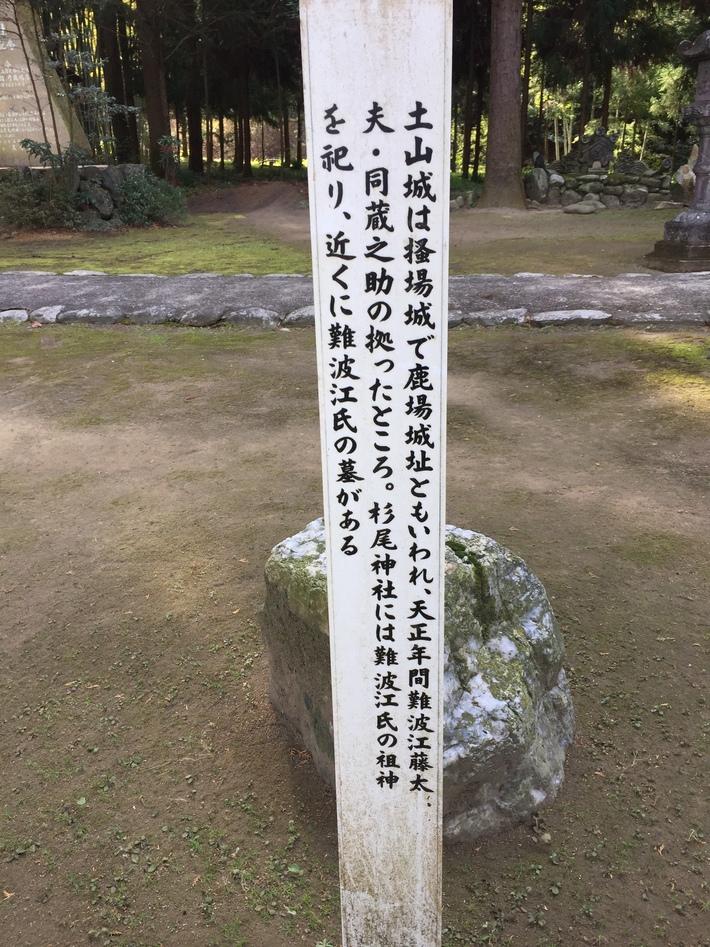 土山城は掻場城で鹿場城址ともいわれ、天正年間難波江藤太
夫・同蔵之助の拠ったところ。杉尾神社には難波江氏の祖神
を祀り、近くに難波江氏の墓がある